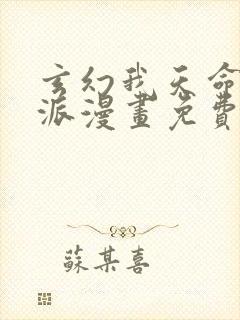 玄幻我天命
派漫畫免費
蘇某喜